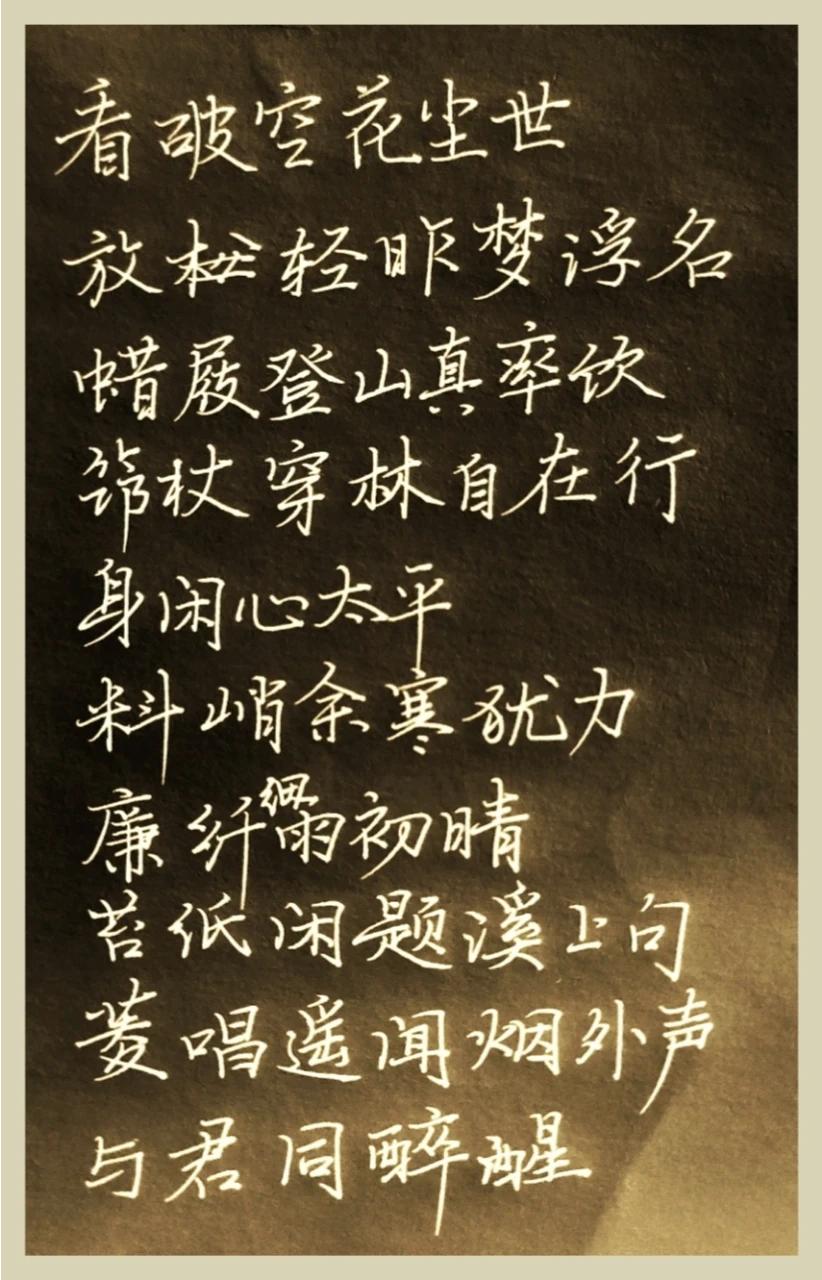 看破空花尘世
放轻昨梦浮名
蜡屐登山真率饮
筇杖穿林自在行
身闲心太平
料峭余寒犹力
廉纤细雨初晴
苔纸闲题溪上句
菱唱遥闻烟外声
与君同醉醒